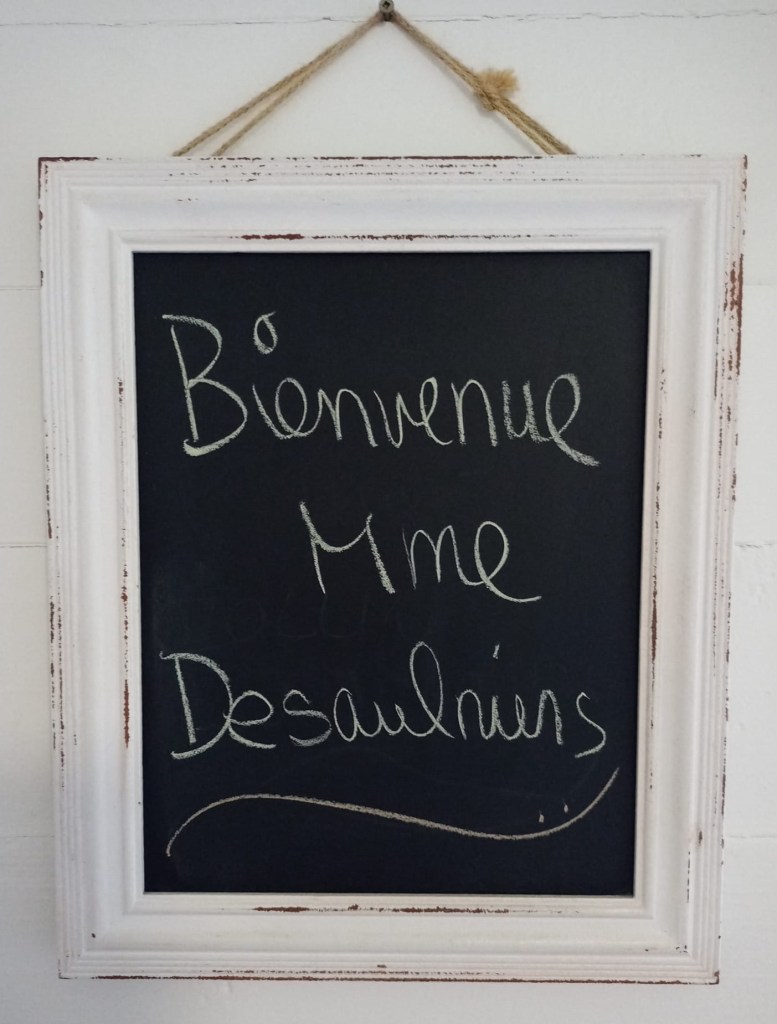 Bienvenue
Mme
Desaulniers